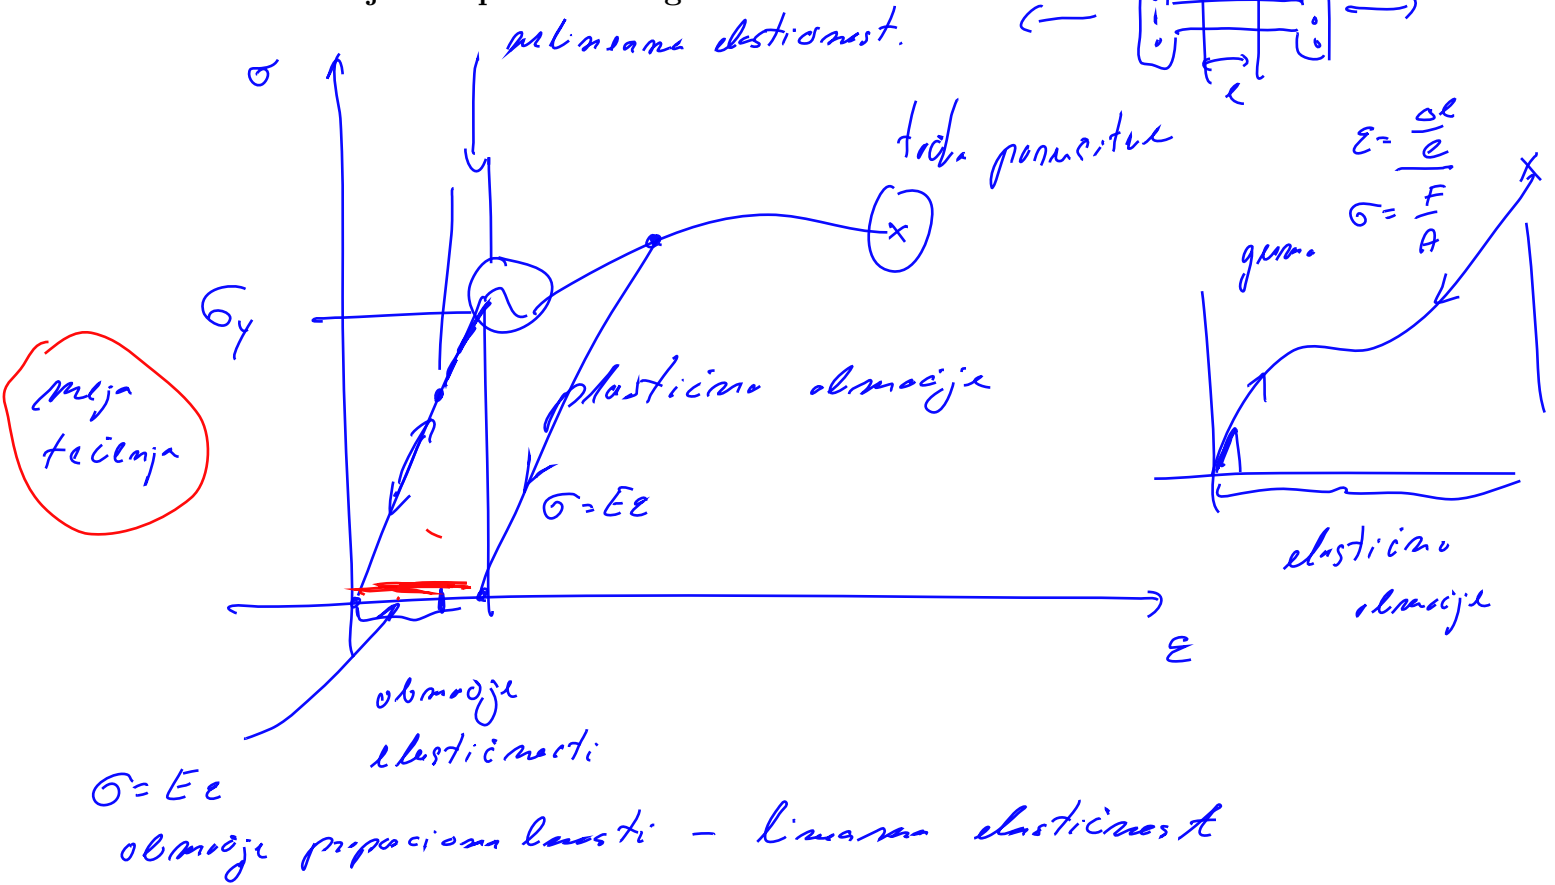 nelinearna elastičnost.
σ
l
točka porušitve
ε = Δl / l
σ = F / A
guma
σy
meja
tečenja
plastično območje
σ = Eε
elastično
območje
ε
območje
elastičnosti
σ = Eε
območje proporcionalnosti – linearna elastičnost